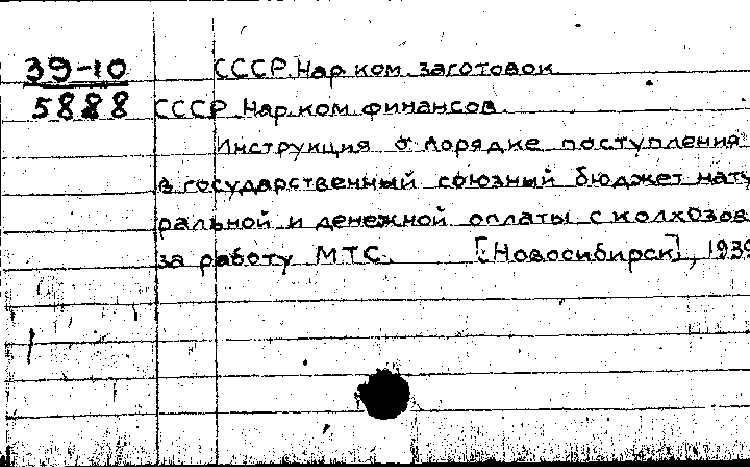 39-10 СССР. Нар. ком. заготовок
5888 СССР. Нар. ком. финансов.
Инструкция о порядке поступления
в государственный союзный бюджет нату
ральной и денежной оплаты с колхозов
за работу МТС. [Новосибирск], 1939